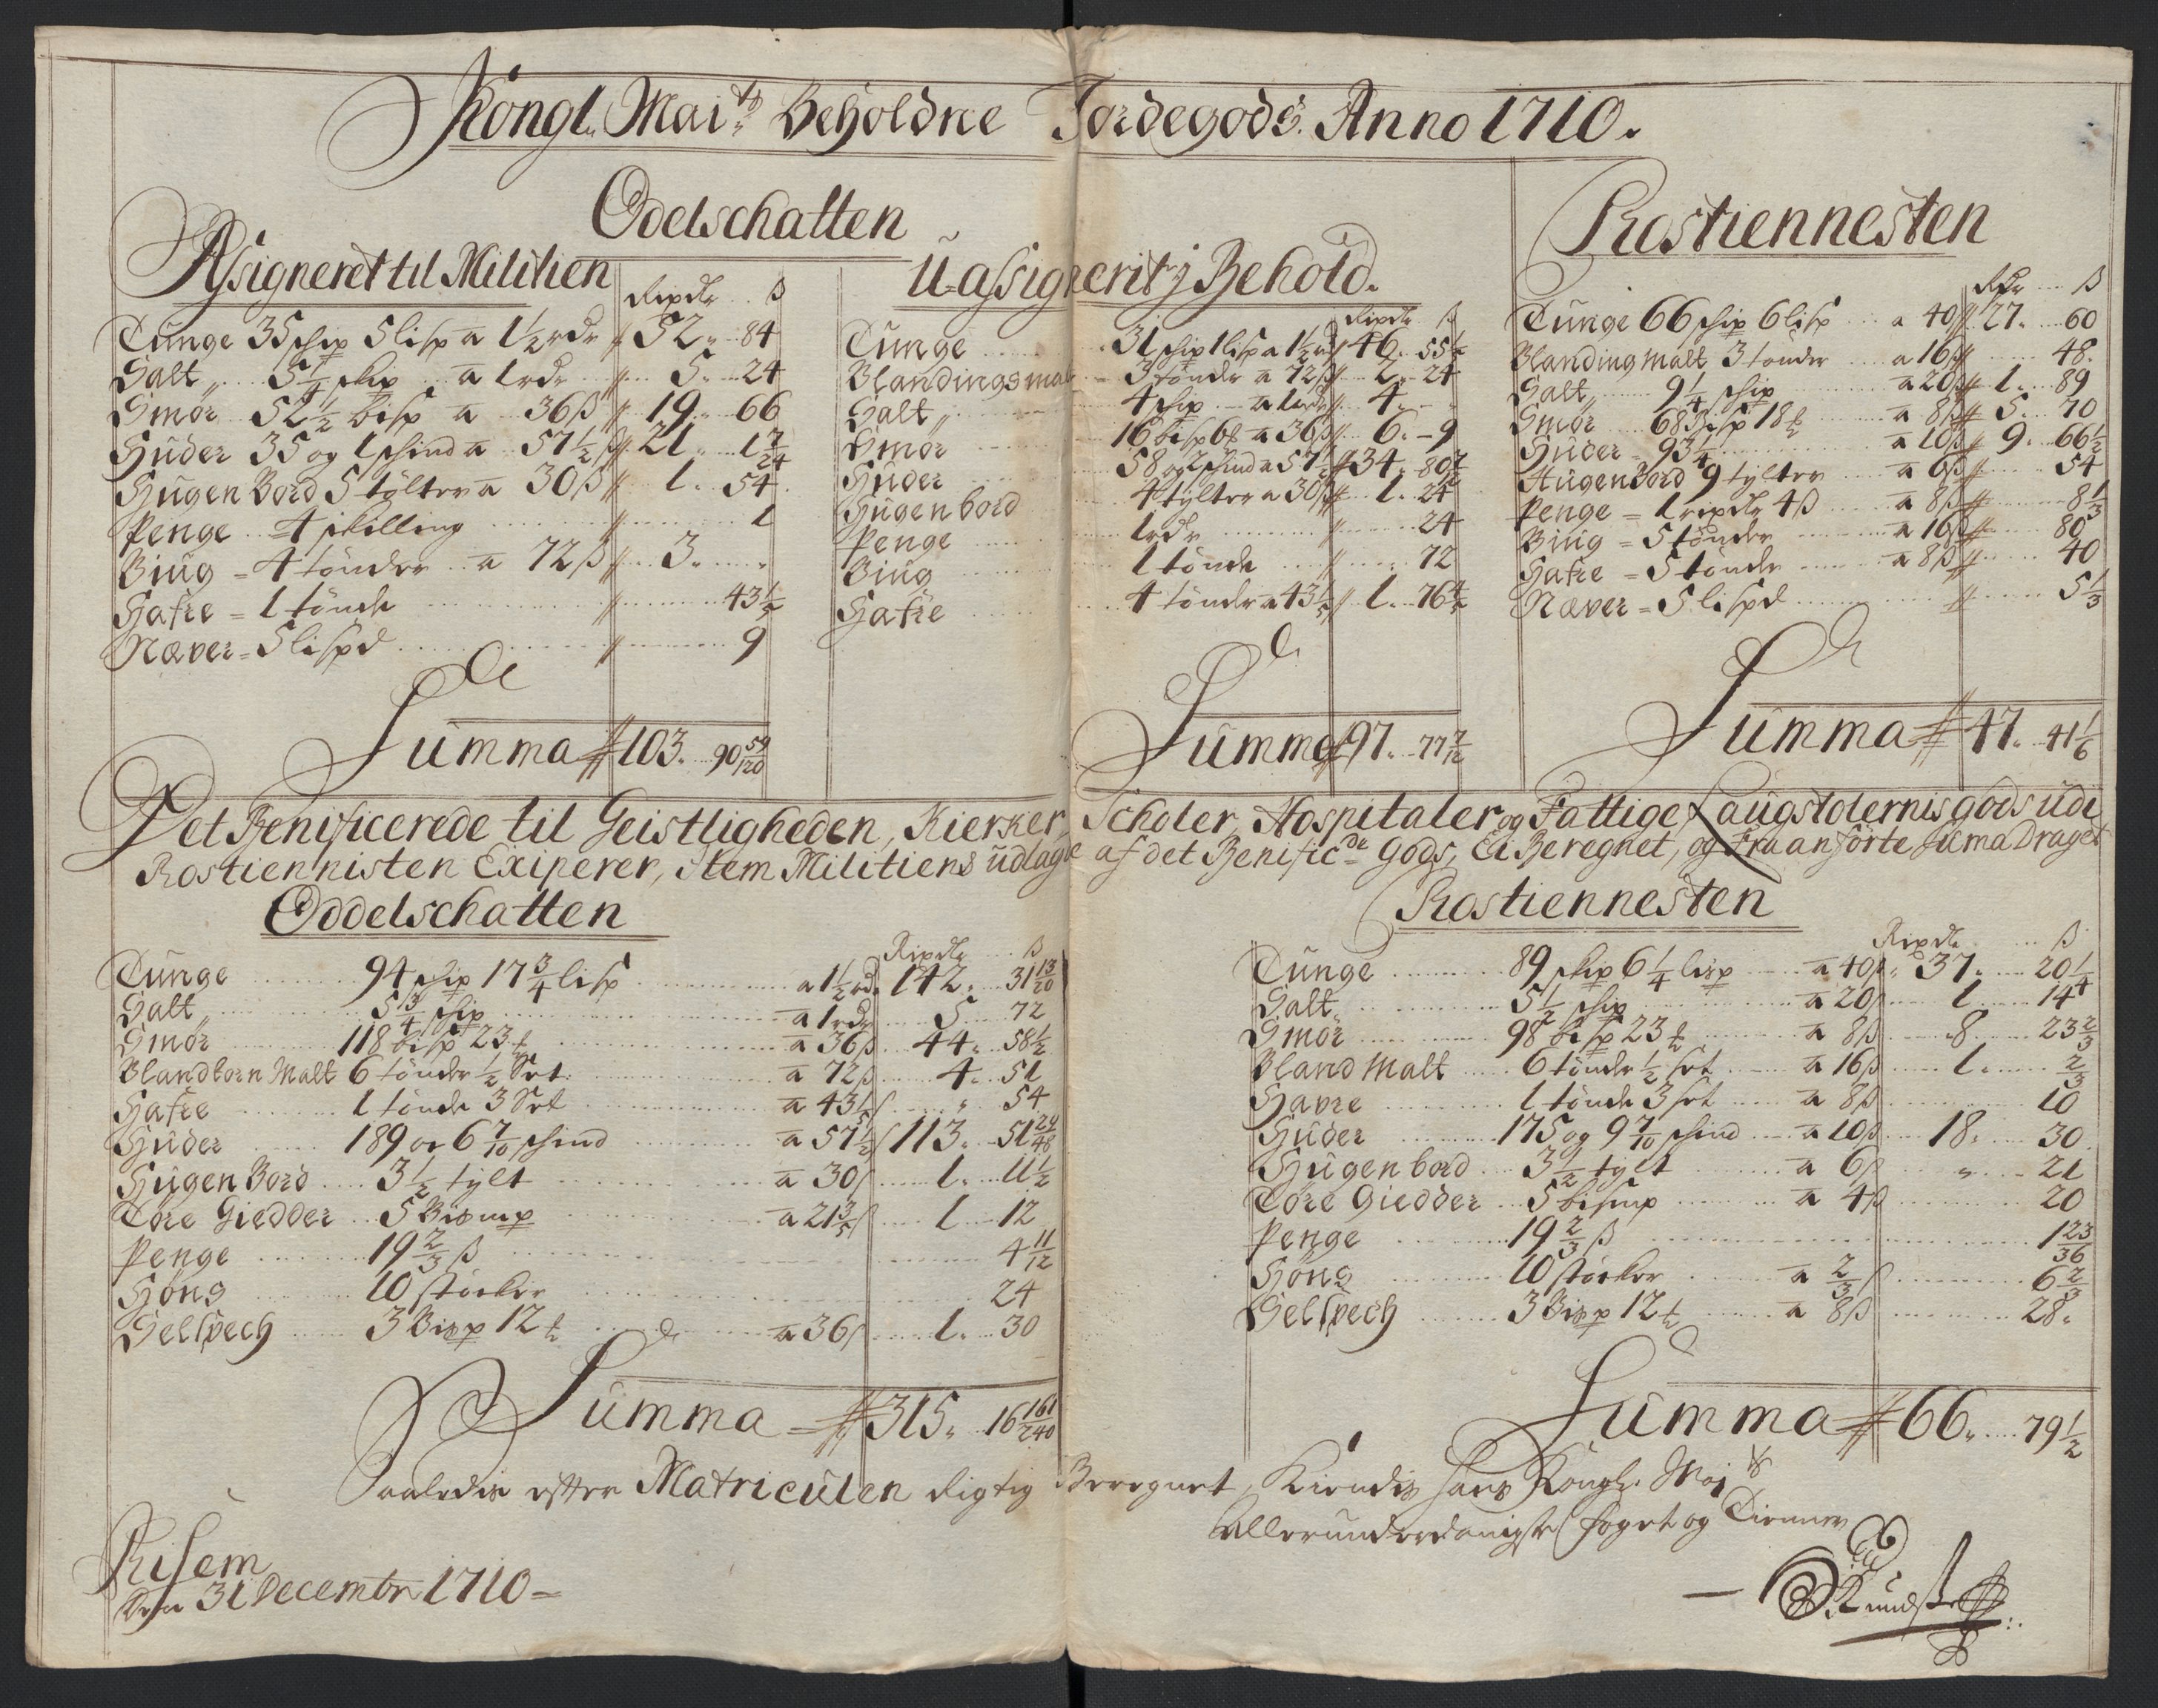 Kongl. Maits Beholdne Jordegods. Anno 1710.
Odelschatten
Assigneret til Militien
Rixdlr ß
Tunge 35 schip 5 lisp a 1½ rdr 52 84
Salt 5¼ schip a 1 rdr 5 24
Smör 52½ bisp a 36 ß 19 66
Huder 35 og 1 schind a 57½ ß 21 1 7/24
Hugen Bord 5 tölter a 30 ß 1 54
Penge 4 skilling 1
Biug 4 tönder a 72 ß 3
Hafre 1 tönde 43⅕
Næver 5 lispd 9
Summa 103 90 59/120
U-assignerit j Behold.
Rixdlr ß
Tunge 31 schip 1 lisp a 1½ rd 46 55½
Blandingsmalt 3 tönder a 72 ß 2 24
Salt 4 schip a 1 rdr 4
Smör 16 bisp 6 a 36 ß 6 9
Huder 58 og 2 schind a 57½ 34 80½
Hugenbord 4 tylter a 30 ß 1 24
Penge 1 rdr 24
Biug 1 tönde 72
Hafre 4 tönder a 43⅕ 1 76⅘
Summa 97 77 7/12
Rostiennesten
Rdr ß
Tunge 66 schip 6 lisp a 40 27 60
Blandingmalt 3 tönder a 16 ß 48
Salt 9¼ schip a 20 ß 1 89
Smör 68 Bisp 18 a 8 ß 5 70
Huder 93¼ a 10 ß 9 66½
Hugen Bord 9 tylter a 6 ß 54
Penge 1 rixdlr 4 ß a 8 ß 8⅓
Biug 5 tönder a 16 ß 80
Hafre 5 tönde a 8 ß 40
Næver 5 lispd 5⅓
Summa 47 41⅙
Det Benificerede til Geistligheden, Kierker, Scholer, Hospitaler og Fattige Laugstolernis gods udi
Rostiennisten Exiperer, Item Militiens udlagde af det Benificde Gods, Ei Beregnet, og Fra anförte Suma Draget
Oddelschatten
Rixdlr ß
Tunge 94 schip 17¾ lisp a 1½ rd 142 31 13/20
Salt 5¾ schip a 1 rdr 5 72
Smör 118 bisp 23 a 36 ß 44 58½
Blandkorn Malt 6 tönder ½ Set a 72 ß 4 51
Hafre 1 tönde 3 Set a 43⅕ 54
Huder 189 og 6 7/10 schind a 57½ 113 51 29/48
Hugen Bord 3½ tylt a 30 1 11½
Töre Giedder 5 Bismp a 21⅗ 1 12
Penge 19⅔ ß 4 11/12
Höns 10 stöcker 24
Selspech 3 Bisp 12 a 36 1 30
Summa 315 16 161/240
Rostiennesten
Rixdlr ß
Tunge 89 schip 6¼ lisp a 40 ß 37 20¼
Salt 5½ schip a 20 ß 1 14
Smör 98 bisp 23 a 8 ß 8 23⅔
Bland Malt 6 tönder ½ set a 16 ß 1 ⅔
Havre 1 tönde 3 set a 8 ß 10
Huder 175 og 9 7/10 schind a 10 ß 18 30
Hugenbord 3½ tylt a 6 ß 21
Töre Giedder 5 bismp a 4 ß 20
Penge 19⅔ ß 1 23/36
Höns 10 stöcker a ⅔ 6⅔
Selspech 3 Bisp 12 a 8 ß 28
Summa 66 79½
Saaledis efter Matriculen rigtig Beregnet, Kiendis Hans Kongl. Mait
allerunderdanigste foget og Tienner
Risem
den 31 Decembr 1710